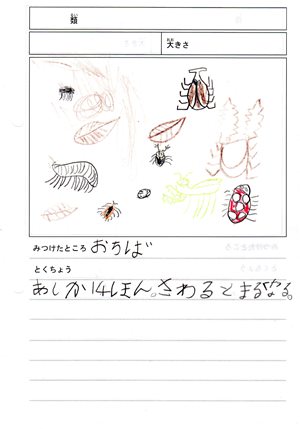 類
大きさ
みつけたところ おちば
とくちょう
あしが14ほん。さわるとまるくなる。